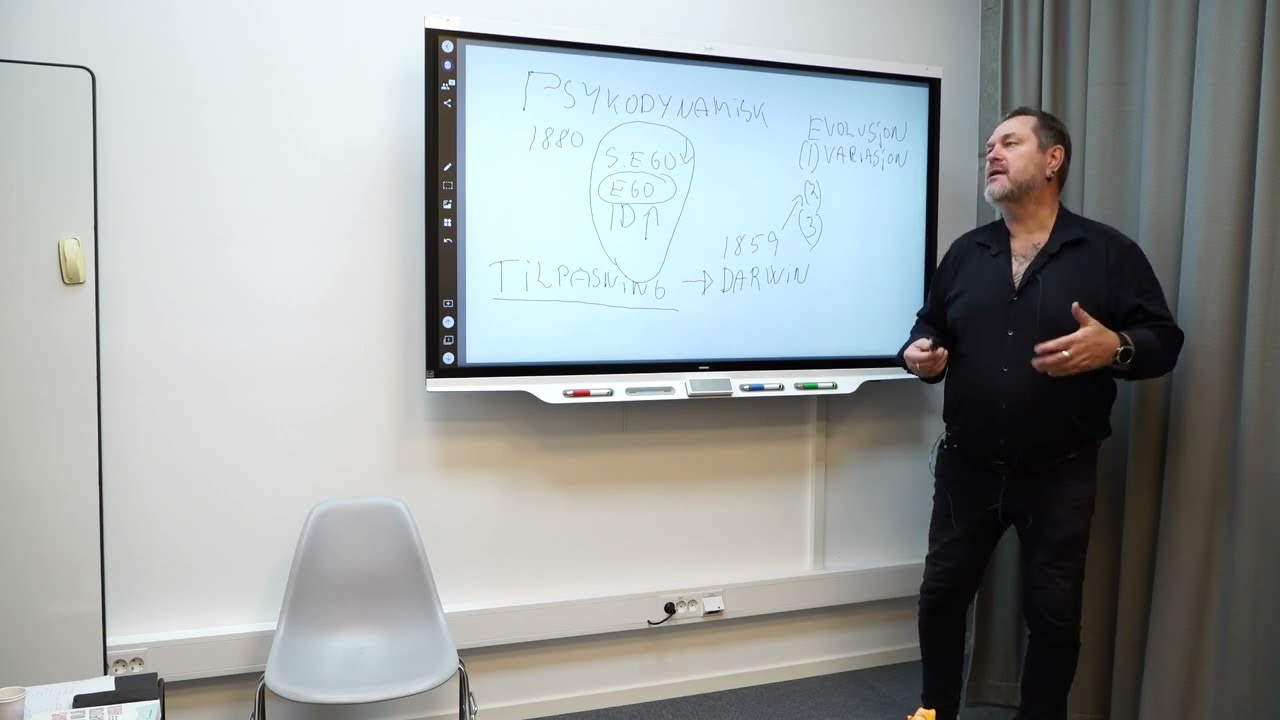 PSYKODYNAMISK
1880
S.EGO
EGO
ID
TILPASNING → DARWIN
1859
EVOLUSJON
(1) VARIASJON
(2)
(3)